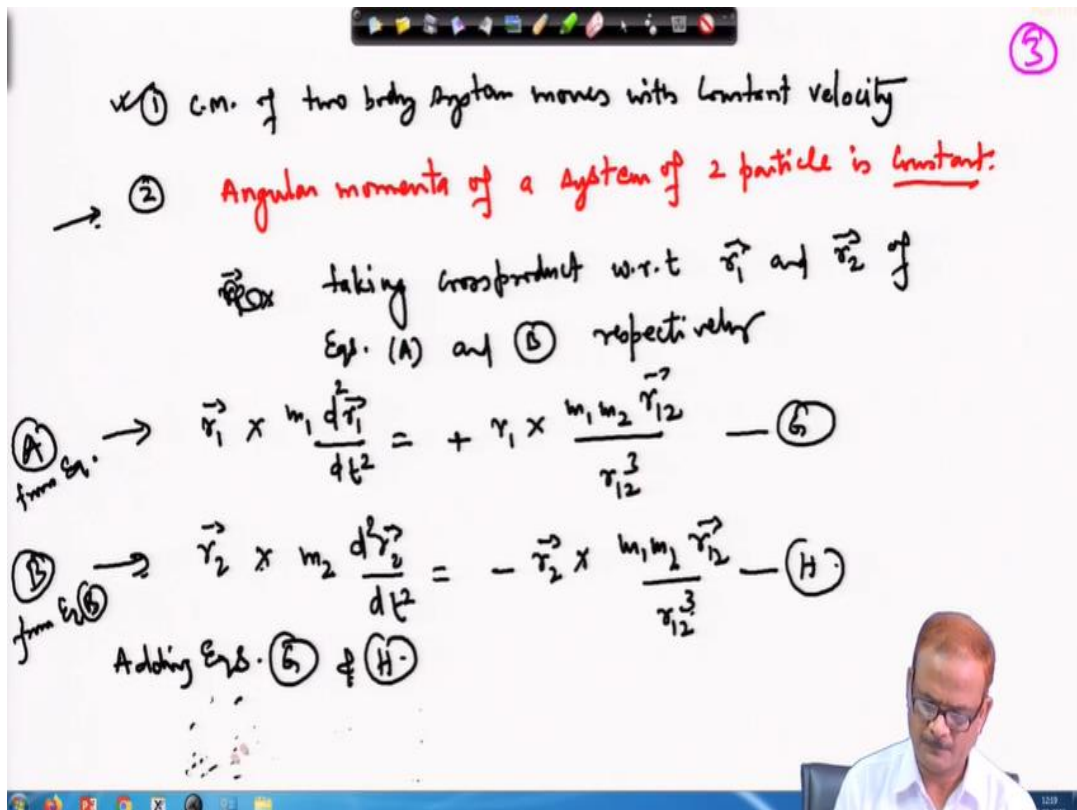 ③
① C.M. of two body system moves with constant velocity
→ ② Angular momenta of a system of 2 particle is constant.
taking crossproduct w.r.t $\vec{r_1}$ and $\vec{r_2}$ of
Eqs. (A) and Ⓑ respectively
Ⓐ from Eq. → $\vec{r_1} \times m_1 \frac{d^2\vec{r_1}}{dt^2} = + r_1 \times \frac{m_1 m_2 \vec{r_{12}}}{r_{12}^3}$ — Ⓖ
Ⓑ from Eq Ⓑ → $\vec{r_2} \times m_2 \frac{d^2\vec{r_2}}{dt^2} = - \vec{r_2} \times \frac{m_1 m_2 \vec{r_{12}}}{r_{12}^3}$ — Ⓗ
Adding Eqs. Ⓖ & Ⓗ